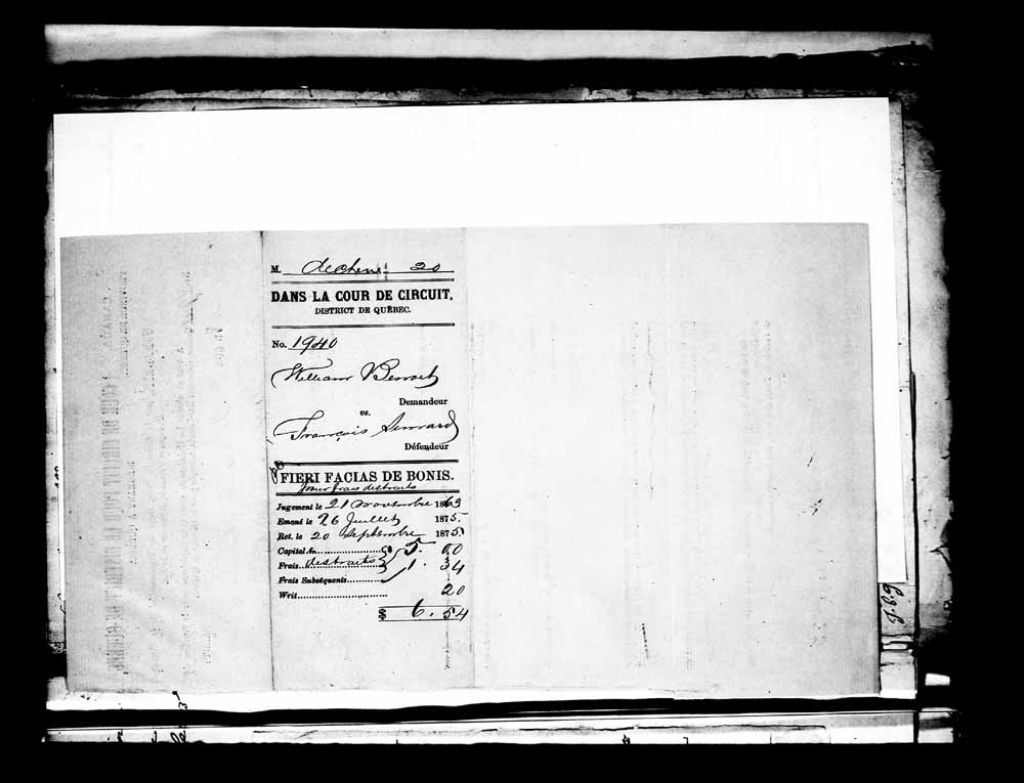 M. 20
DANS LA COUR DE CIRCUIT,
DISTRICT DE QUÉBEC.
No. 1940
William Benoit
Demandeur
vs.
François
Défendeur
FIERI FACIAS DE BONIS.
pour frais distraits
Jugement le 21 Novembre 1863
Emané le 26 Juillet 1875.
Ret. le 20 Septembre 1875
Capital &c. 5. 00
Frais distraits 1. 34
Frais Subséquents
Writ 20
$ 6. 54